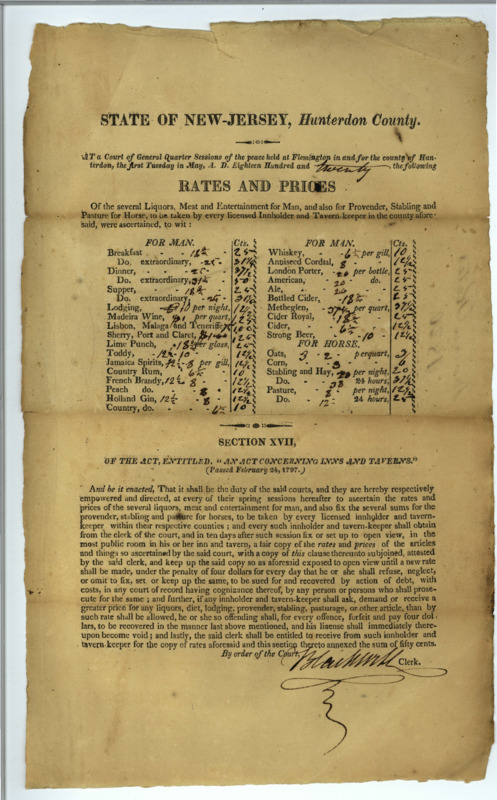 STATE OF NEW-JERSEY, Hunterdon County.
AT a Court of General Quarter Sessions of the peace held at Flemington in and for the county of Hun-
terdon, the first Tuesday in May, A. D. Eighteen Hundred and twenty the following
RATES AND PRICES
Of the several Liquors, Meat and Entertainment for Man, and also for Provender, Stabling and
Pasture for Horse, to be taken by every licensed Innholder and Tavern-keeper in the county afore-
said, were ascertained, to wit:
FOR MAN. Cts.
Breakfast 18¾ 25
Do. extraordinary, 25 31¼
Dinner, 25 37½
Do. extraordinary, 37½ 50
Supper, 18¾ 25
Do. extraordinary 25 31¼
Lodging, per night, 12½
Madeira Wine, per quart,
Lisbon, Malaga and Teneriffe
Sherry, Port and Claret,
Lime Punch, per glass, 25
Toddy, 12½ 10 12½
Jamaica Spirits, 12½ 8 per gill, 12½
Country Rum, 6¼ 10
French Brandy, 12½ 8 12½
Peach do. 8 12½
Holland Gin, 12½ 8 12½
Country, do. 6¼ 10
FOR MAN. Cts.
Whiskey, 6¼ per gill, 10
Anniseed Cordial, 8 12½
London Porter, per bottle, 25
American, 20 do. 25
Ale, 20 25
Bottled Cider, 18¾ 25
Metheglen, 37½ per quart, 37½
Cider Royal, 18¾ 25
Cider, 6¼ 12½
Strong Beer, 10 12½
FOR HORSE.
Oats, 3 2 per quart, 3
Corn, 3 6
Stabling and Hay, 20 per night, 20
Do. 38 24 hours, 37½
Pasture, 8 per night, 12½
Do. 12 24 hours, 25
SECTION XVII,
OF THE ACT, ENTITLED, "AN ACT CONCERNING INNS AND TAVERNS."
(Passed February 24, 1797.)
And be it enacted, That it shall be the duty of the said courts, and they are hereby respectively
empowered and directed, at every of their spring sessions hereafter to ascertain the rates and
prices of the several liquors, meat and entertainment for man, and also fix the several sums for the
provender, stabling and pasture for horses, to be taken by every licensed innholder and tavern-
keeper within their respective counties; and every such innholder and tavern-keeper shall obtain
from the clerk of the court, and in ten days after such session fix or set up to open view, in the
most public room in his or her inn and tavern, a fair copy of the rates and prices of the articles
and things so ascertained by the said court, with a copy of this clause thereunto subjoined, attested
by the said clerk, and keep up the said copy so as aforesaid exposed to open view until a new rate
shall be made, under the penalty of four dollars for every day that he or she shall refuse, neglect,
or omit to fix, set or keep up the same, to be sued for and recovered by action of debt, with
costs, in any court of record having cognizance thereof, by any person or persons who shall prose-
cute for the same; and further, if any innholder and tavern-keeper shall ask, demand or receive a
greater price for any liquors, diet, lodging, provender, stabling, pasturage, or other article, than by
such rate shall be allowed, he or she so offending shall, for every offence, forfeit and pay four dol-
lars, to be recovered in the manner last above mentioned, and his lisense shall immediately there-
upon become void; and lastly, the said clerk shall be entitled to receive from such innholder and
tavern-keeper for the copy of rates aforesaid and this section thereto annexed the sum of fifty cents.
By order of the Court,
Blackwell Clerk.